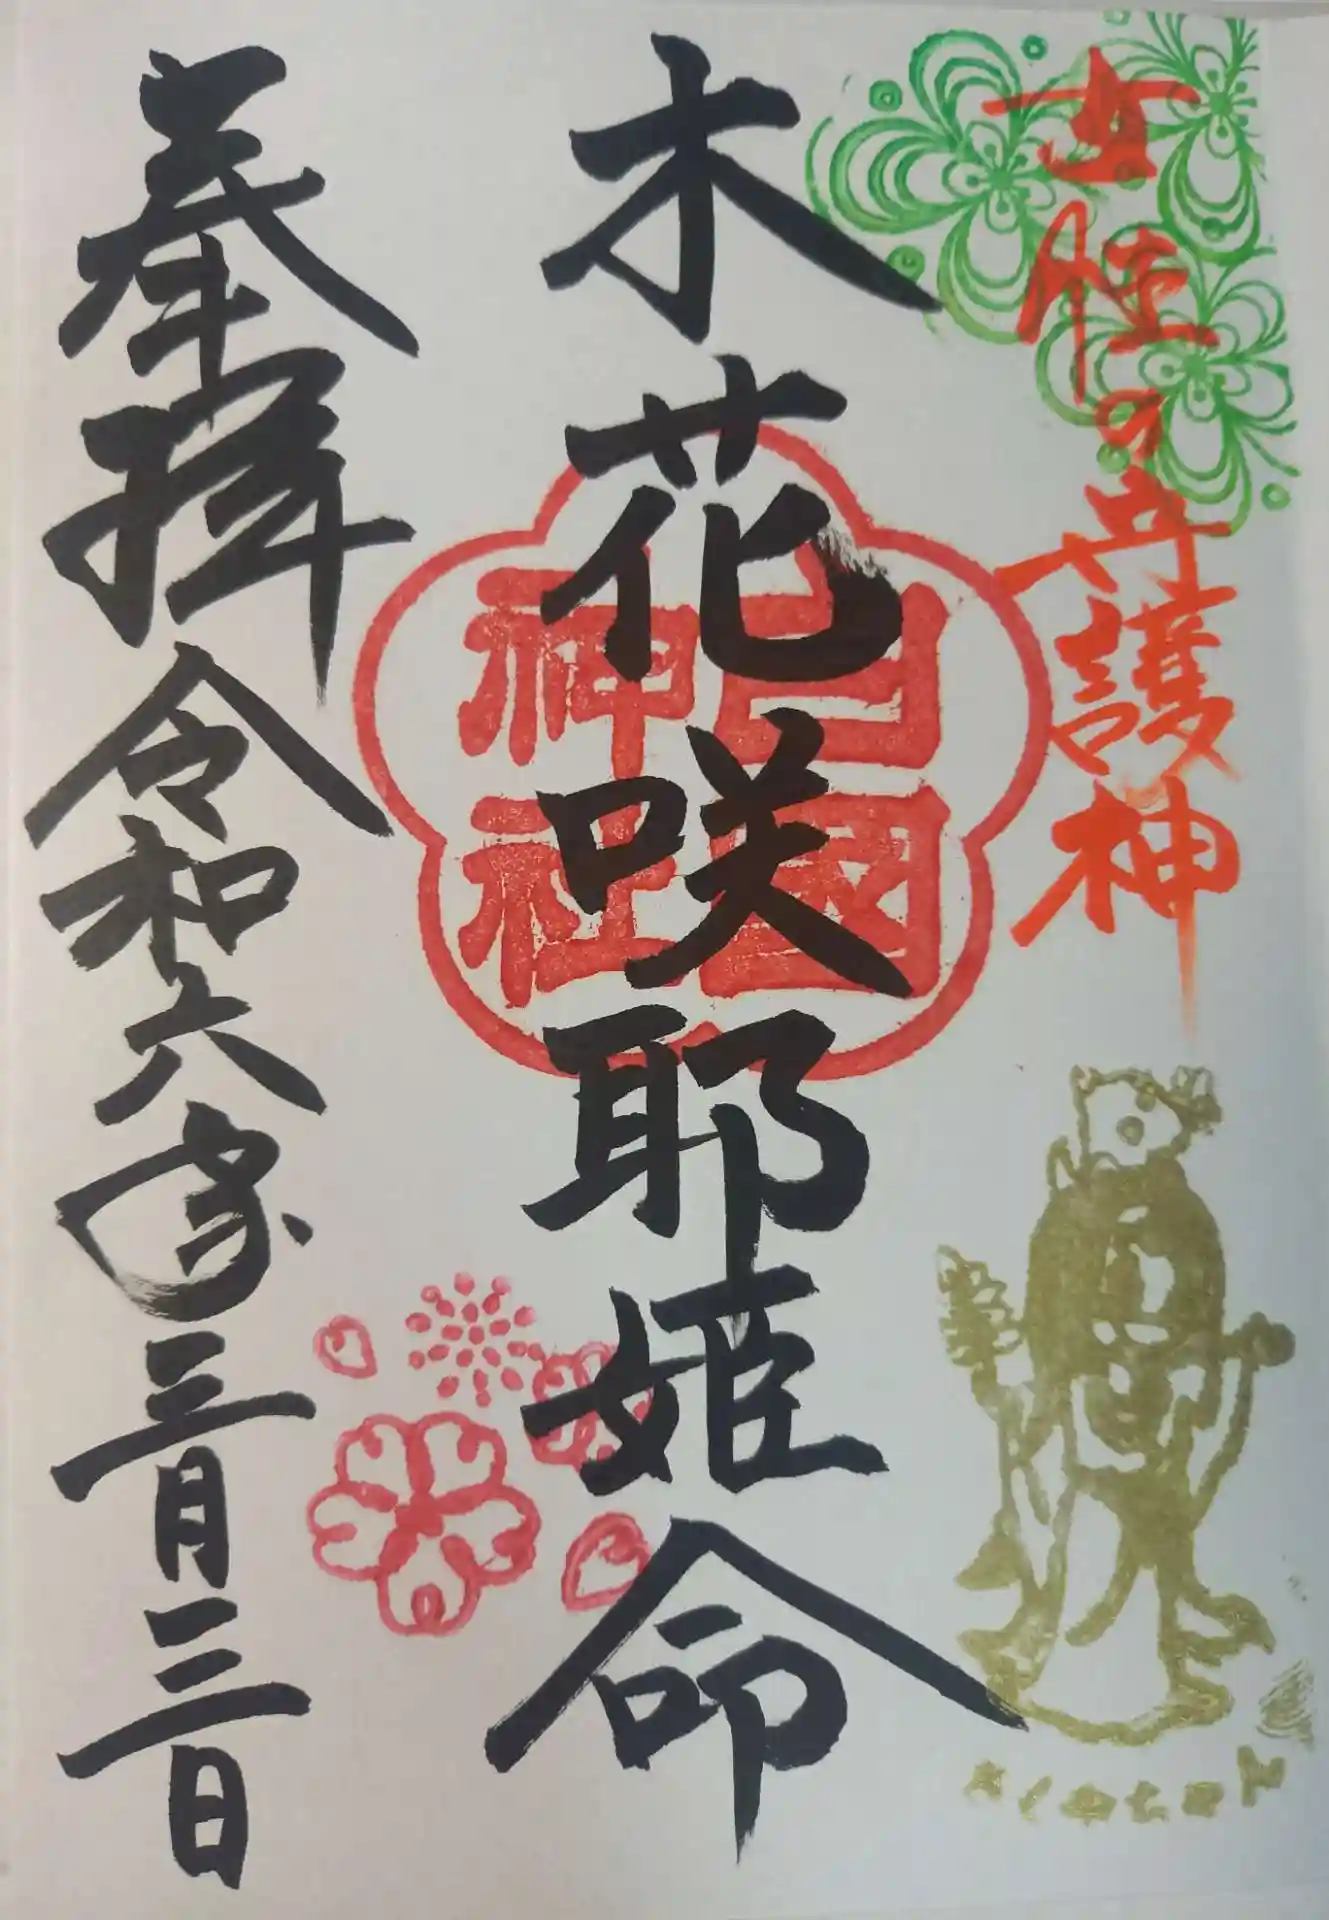 女性の守護神
木花咲耶姫命
白国
神社
奉拝 令和六年三月三日